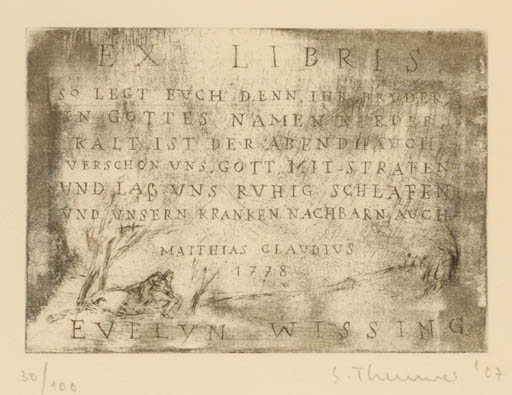 EX LIBRIS
SO LEGT EUCH DENN, IHR BRÜDER,
IN GOTTES NAMEN NIEDER
KALT IST DER ABENDHAUCH
VERSCHON UNS, GOTT, MIT STRAFEN
UND LAß UNS RUHIG SCHLAFEN
UND UNSERN KRANKEN NACHBARN AUCH.
MATTHIAS CLAUDIUS
1778
EVELYN WISSING
30/100 '07